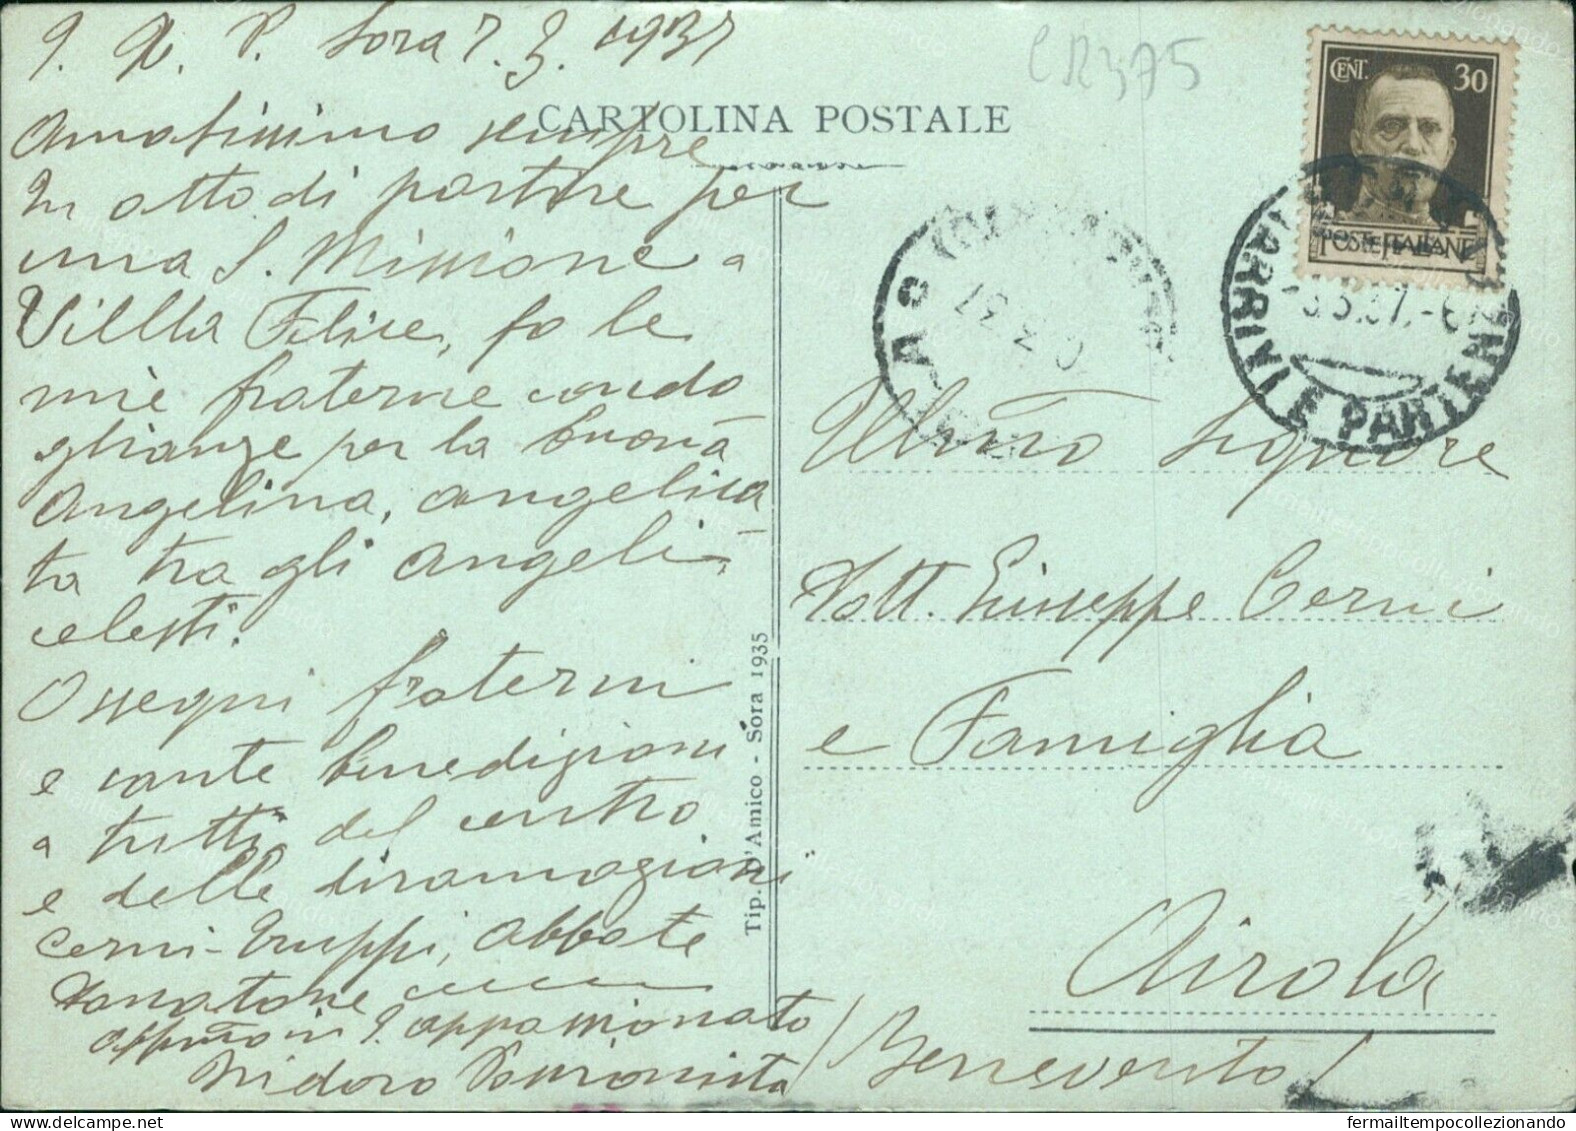 J. X. P. Sora 7. 3. 1937
CR375
CARTOLINA POSTALE
Amatissimo sempre
In atto di partire per
una S. Missione a
Villla Felice, fo le
mie fraterne condo
glianze per la buona
Angelina, angelica
ta tra gli angeli
celesti.
Ossequi fraterni
e sante benedizioni
a tutti del centro
e delle diramazioni
Cerni-Truppi, Abbate
appassionato
Isidoro Passionista
Tip. D'Amico - Sora 1935
CENT. 30
POSTE ITALIANE
ARRIVI E PARTENZE
Ill.mo Signore
Dott. Giuseppe Cerni
e Famiglia
Airola
(Benevento)
fermailtempocollezionando
© fermailtempocollezionando